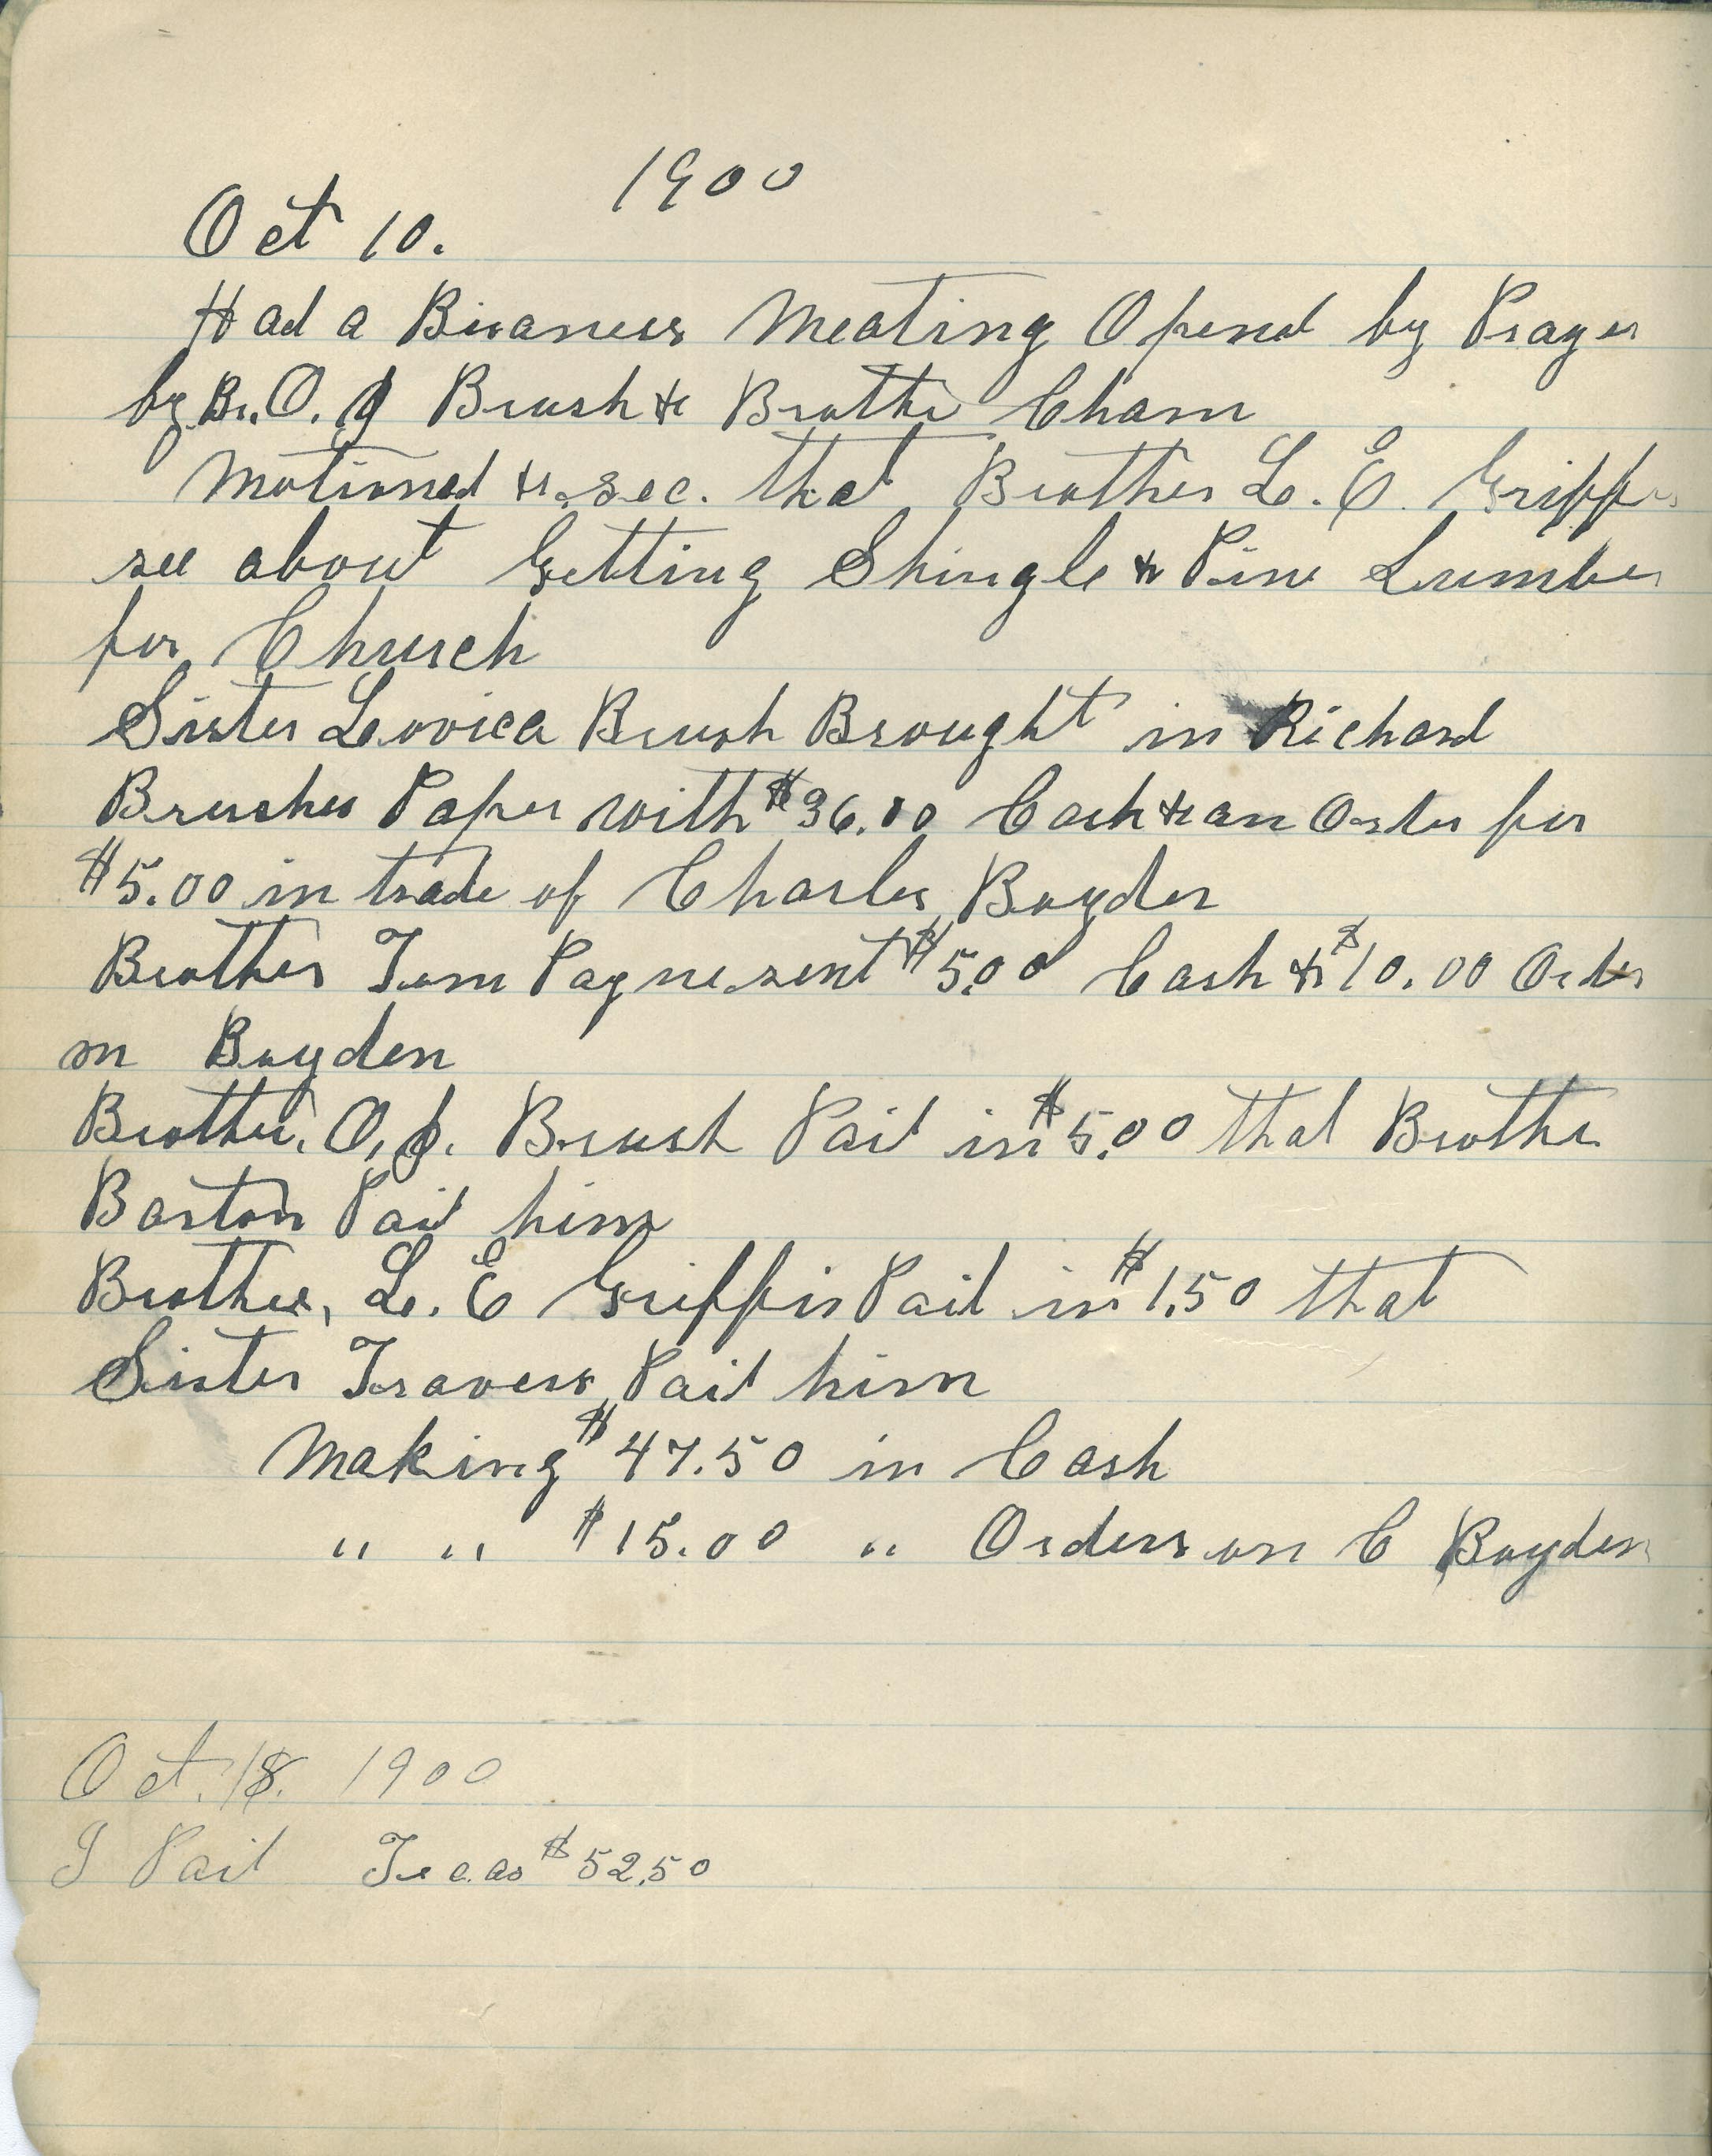 1900
Oct 10.
Had a Bisaness Meating Opend by Prayer
by Br. O. J Brush & Brother Cham
Motioned & sec. that Brother L. E. Griffin
see about Getting Shingle & Pine Lumber
for Church
Sister Lovica Brush Brought in Richard
Brushes Paper with $36.00 Cash & an Order for
$5.00 in trade of Charles Boyden
Brother Tom Payne sent $5.00 Cash & $10.00 Order
on Boyden
Brother. O. J. Brush Paid in $5.00 that Brother
Barton Paid him
Brother, L. E Griffin Paid in $1.50 that
Sister Travess Paid him
Making $47.50 in Cash
" " $15.00 " Orders on C Boyden
Oct. 18. 1900
I Paid Treas $52.50